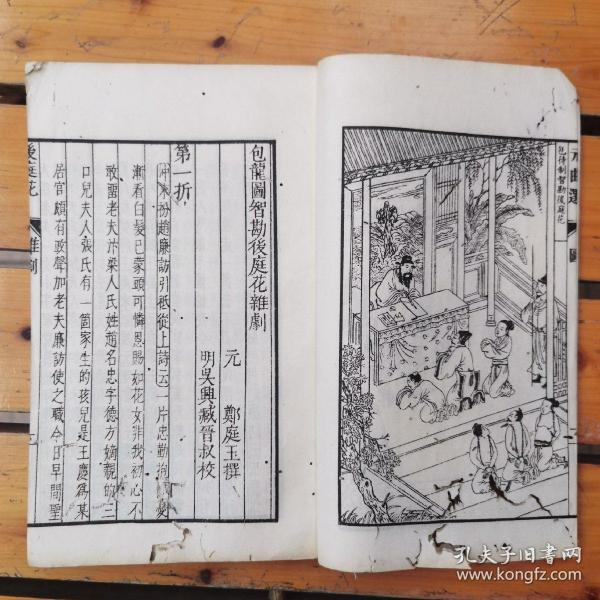 元曲選 圖
包待制智勘後庭花
包龍圖智勘後庭花雜劇
元 鄭庭玉撰
明吳興臧晉叔校
第一折
冲末扮趙廉訪引祗從上詩云一片忠勤抱
漸看白髮已蒙頭可憐恩賜如花女非我初心不
敢留老夫汴梁人氏姓趙名忠字德方嫡親的三
口兒夫人張氏有一箇家生的孩兒是王慶爲某
居官頗有政聲加老夫廉訪使之職今日早間聖
後庭花 雜劇
孔夫子旧书网
www.kongfz.com